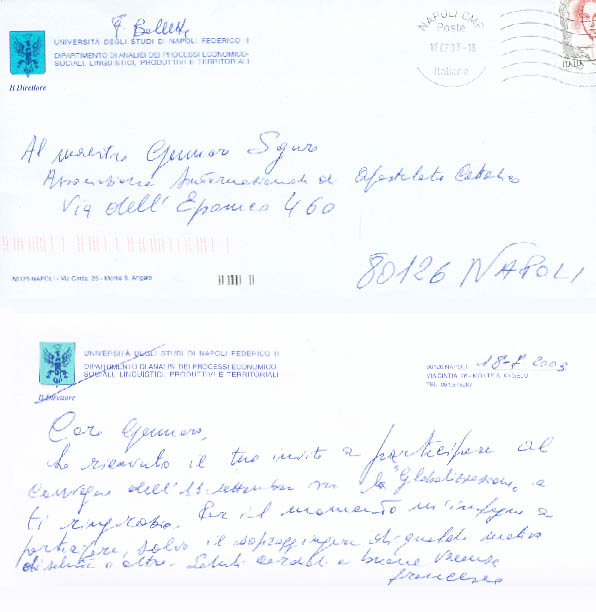 F. Bell
UNIVERSITÀ DEGLI STUDI DI NAPOLI FEDERICO II
DIPARTIMENTO DI ANALISI DEI PROCESSI ECONOMICO-
SOCIALI, LINGUISTICI, PRODUTTIVI E TERRITORIALI
Il Direttore
NAPOLI CMP
Poste
Italiane
ITALIA
Al maestro Gennaro Sguro
Associazione Internazionale di Apostolato Cattolico
Via dell'Epomeo 460
80126 NAPOLI
80126 NAPOLI - Via Cintia, 26 - Monte S. Angelo
UNIVERSITÀ DEGLI STUDI DI NAPOLI FEDERICO II
DIPARTIMENTO DI ANALISI DEI PROCESSI ECONOMICO-
SOCIALI, LINGUISTICI, PRODUTTIVI E TERRITORIALI
Il Direttore
80126 NAPOLI 18-7 2003
VIA CINTIA, 26 - MONTE S. ANGELO
TEL. 081
Caro Gennaro,
ho ricevuto il tuo invito a partecipare al
Convegno dell'11 settembre su la "Globalizzazione" e
ti ringrazio. Per il momento m'impegno a
partecipare, salvo il sopraggiungere di qualche motivo
di salute o altro. Saluti cordiali e buone vacanze
Francesco